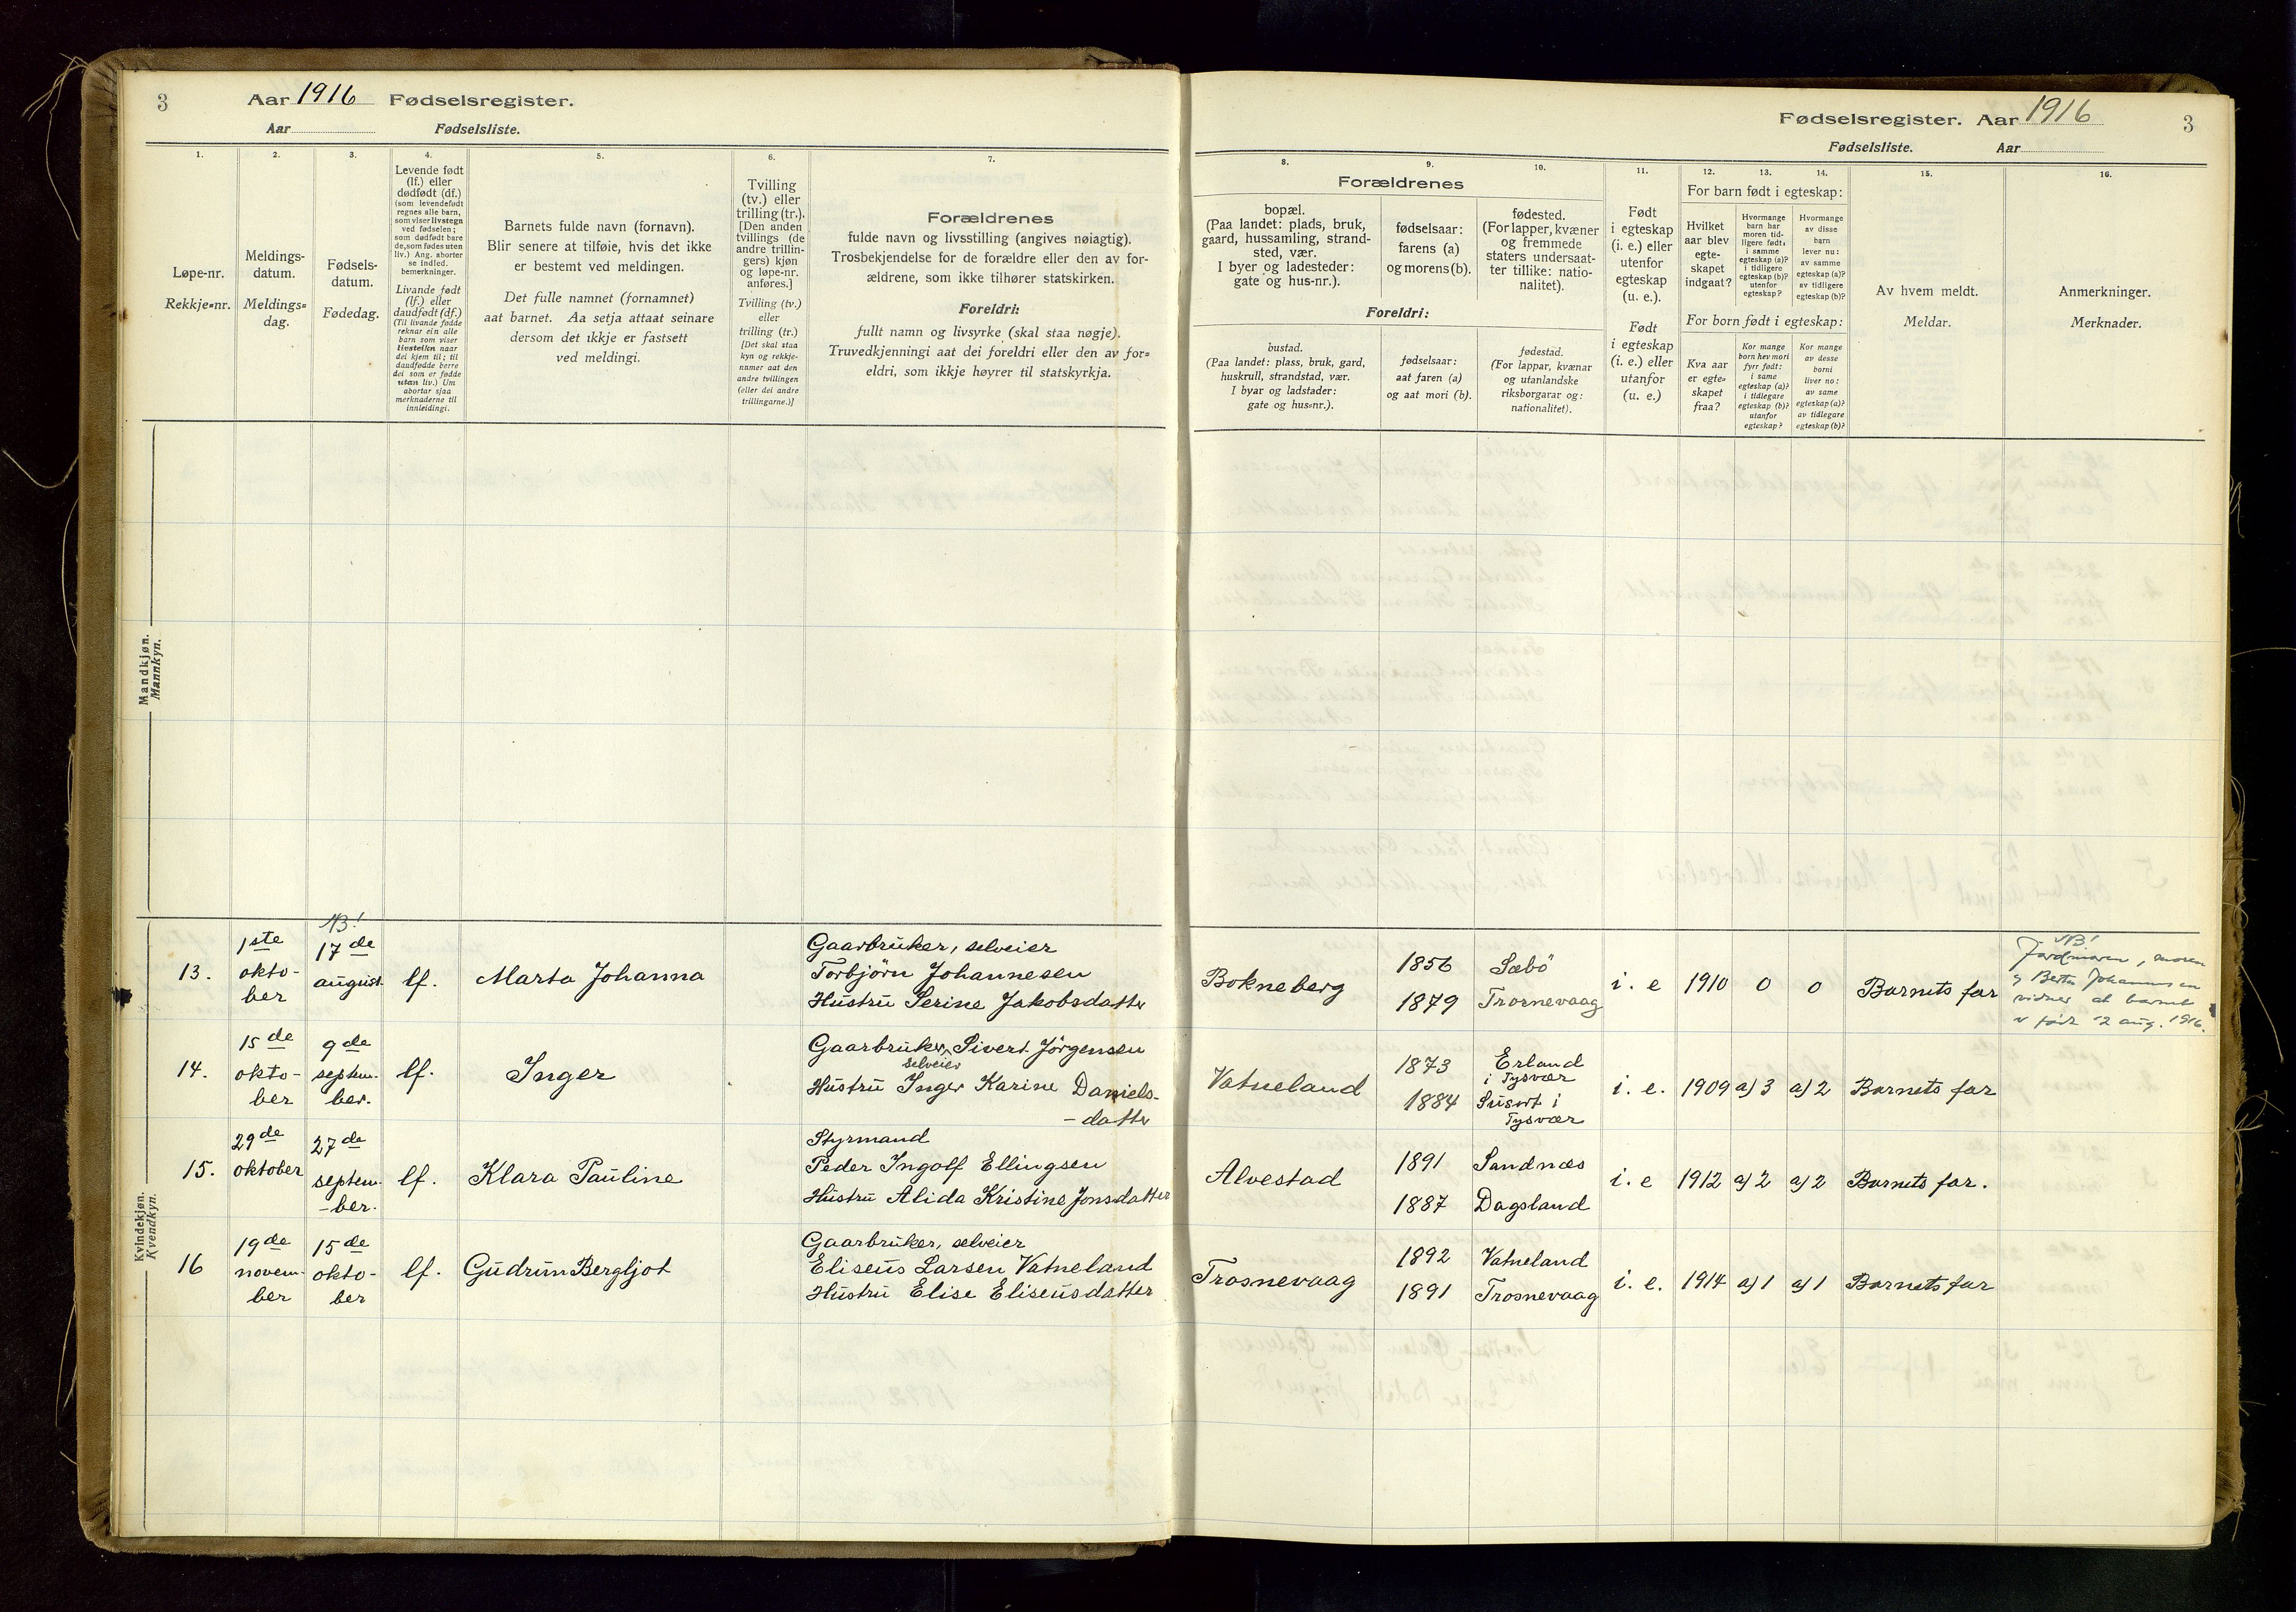 3 Aar 1916 Fødselsregister.
Aar Fødselsliste.
1.
Løpe-nr.
Rekkje=nr.
2.
Meldings-
datum.
Meldings=
dag.
3.
Fødsels-
datum.
Fødedag.
4.
Levende født
(lf.) eller
dødfødt (df.)
(som levendefødt
regnes alle barn,
som viser livstegn
ved fødselen;
som dødfødt bare
de, som fødes uten
liv.) Ang. aborter
se indled.
bemerkninger.
Livande født
(lf.) eller
daudfødt (df.)
(Til livande fødde
reknar ein alle
barn som viser
livsteikn naar
dei kjem til; til
daudfødde berre
dei som er fødde
utan liv.) Um
abortar sjaa
merknaderne til
innleidingi.
5.
Barnets fulde navn (fornavn).
Blir senere at tilføie, hvis det ikke
er bestemt ved meldingen.
Det fulle namnet (fornamnet)
aat barnet. Aa setja attaat seinare
dersom det ikkje er fastsett
ved meldingi.
6.
Tvilling
(tv.) eller
trilling (tr.).
[Den anden
tvillings (de
andre trillin-
gers) kjøn
og løpe-nr.
anføres.]
Tvilling (tv.)
eller
trilling (tr.)
[Det skal staa
kyn og rekkje-
numer aat den
andre tvillingen
(eller dei andre
trillingarne.)]
7.
Forældrenes
fulde navn og livsstilling (angives nøiagtig).
Trosbekjendelse for de forældre eller den av for-
ældrene, som ikke tilhører statskirken.
Foreldri:
fullt namn og livsyrke (skal staa nøgje).
Truvedkjenningi aat dei foreldri eller den av for=
eldri, som ikkje høyrer til statskyrkja.
Mandkjøn.
Mannkyn.
NB!
13.
1ste
okto-
ber
17de
august
lf.
Marta Johanna
Gaarbruker, selveier
Torbjørn Johannesen
Hustru Serine Jakobsdatter
14.
15de
okto-
ber
9de
septem-
ber.
lf.
Inger
Gaarbruker, Sivert Jörgensen
selveier
Hustru Inger Karine Daniels-
-datter
15.
29de
oktober
27de
septem-
-ber.
lf.
Klara Pauline
Styrmand
Peder Ingolf Ellingsen
Hustru Alida Kristine Jonsdatter
16
19de
novem-
ber
15de
okto-
ber
lf.
Gudrun Bergljot
Gaarbruker, selveier
Eliseus Larsen Vatneland
Hustru Elise Eliseusdatter
Kvindekjøn.
Kvendkyn.
Fødselsregister. Aar 1916 3
Fødselsliste. Aar
Forældrenes
8.
bopæl.
(Paa landet: plads, bruk,
gaard, hussamling, strand-
sted, vær.
I byer og ladesteder:
gate og hus-nr.).
9.
fødselsaar:
farens (a)
og morens (b).
10.
fødested.
(For lapper, kvæner
og fremmede
staters undersaat-
ter tillike: natio-
nalitet).
Foreldri:
bustad.
(Paa landet: plass, bruk, gard,
huskrull, strandstad, vær.
I byar og ladstader:
gate og hus=nr.).
fødselsaar:
aat faren (a)
og aat mori (b).
fødestad.
(For lappar, kvænar
og utanlandske
riksborgarar og:
nationalitet).
11.
Født
i egteskap
(i. e.) eller
utenfor
egteskap
(u. e.).
Født
i egteskap
(i. e.) eller
utanfor
(u. e.)
12. 13. 14.
For barn født i egteskap:
Hvilket
aar blev
egte-
skapet
indgaat?
Hvormange
barn har
moren tid-
ligere født:
i samme
egteskap (a)?
i tidligere
egteskap (b)?
utenfor
egteskap?
Hvormange
av disse
barn
lever nu:
av samme
egteskap (a)?
av tidligere
egteskap (b)?
For born født i egteskap:
Kva aar
er egte=
skapet
fraa?
Kor mange
born hev mori
fyrr født:
i same
egteskap (a)?
i tidlegare
egteskap (b)?
utanfor
egteskap?
Kor mange
av desse
borni
liver no:
av same
egteskap (a)?
av tidlegare
egteskap (b)?
15.
Av hvem meldt.
Meldar.
16.
Anmerkninger.
Merknader.
Bokneberg
1856
1879
Sæbö
Trosnevaag
i. e
1910
0
0
Barnets far
NB!
Jordmoren, moren
og Berta Johannesen
vidner at barnet
er født 12 aug. 1916.
Vatneland
1873
1884
Erland
i Tysvær
Susort i
Tysvær
i. e.
1909
a) 3
a) 2
Barnets far
Alvestad
1891
1887
Sandnæs
Dagsland
i. e
1912
a) 2
a) 2
Barnets far.
Trosnevaag
1892
1891
Vatneland
Trosnevaag
i. e.
1914
a) 1
a) 1
Barnets far